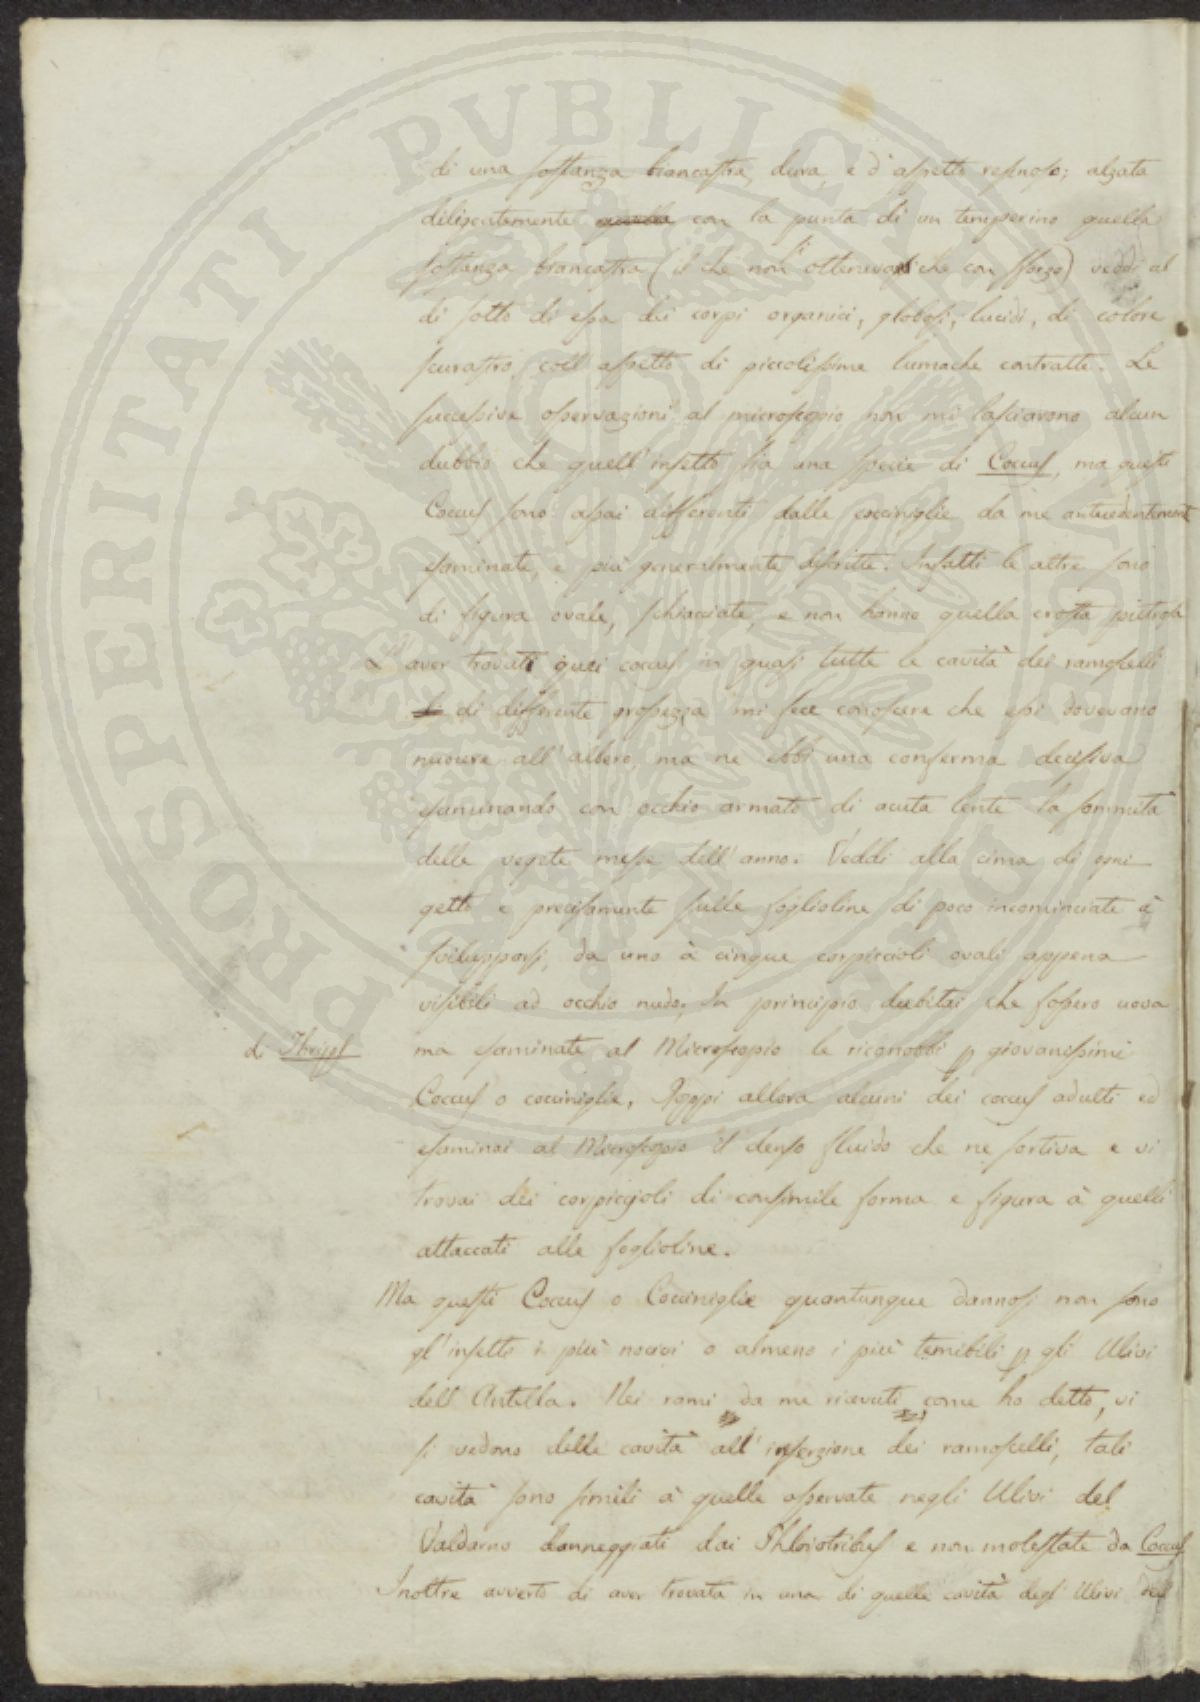 di una sostanza biancastra, dura, e d'aspetto resinoso; alzata
diligentemente quella con la punta di un temperino quella
sostanza biancastra (il che non si otteneva che con sforzo) veddi al
di sotto di essa dei corpi organici, globosi, lucidi, di colore
scurastro, coll'aspetto di piccolissime lumache contratte. Le
successive osservazioni al microscopio non mi lasciarono alcun
dubbio che quell'insetto sia una specie di Coccus, ma questi
Coccus sono assai differenti dalle cocciniglie da me antecedentemente
esaminate, e più generalmente descritte. Infatti le altre sono
di figura ovale, schiacciate, e non hanno quella crosta pietrosa
L'aver trovati quei coccus in quasi tutte le cavità dei ramoscelli
di differente grossezza mi fece conoscere che essi dovevano
nuocere all'albero, ma ne ebbi una conferma decisiva
esaminando con occhio armato di acuta lente la sommità
delle vegete messe dell'anno. Veddi alla cima di ogni
getto e precisamente sulle foglioline di poco incominciate à
svilupparsi, da uno à cinque corpiccioli ovali appena
visibili ad occhio nudo. In principio dubitai che fossero uova
di Thrips
ma esaminate al Microscopio le riconobbi p giovanissimi
Coccus o cocciniglie. Poggi allora alcuni dei coccus adulti ed
esaminai al Microscopio il denso fluido che ne sortiva e vi
trovai dei corpiccioli di consimile forma e figura à quelli
attaccati alle foglioline.
Ma questi Coccus o Cocciniglie quantunque dannosi non sono
gl'insetti i più nocivi o almeno i più temibili p gli Ulivi
dell'Antella. Nei rami da me ricevuti come ho detto, vi
si vedono delle cavità all'inserzione dei ramoscelli, tali
cavità sono simili à quelle osservate negli Ulivi del
Valdarno danneggiati dai Phloiotribus e non molestate da Coccus
Inoltre avverto di aver trovata in una di quelle cavità degl'Ulivi dell